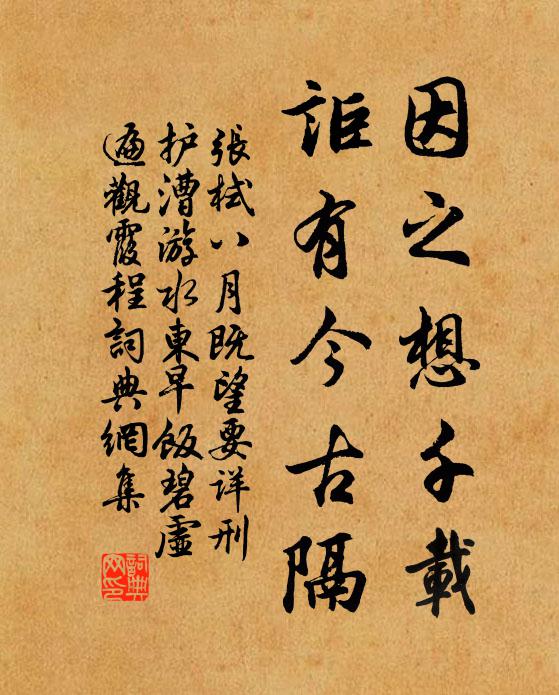 因之想千載
詎有今古隔
張栻八月既望要详刑
护漕游水東早飯碧虛
遍觀霞程詞典網集
詞典网印